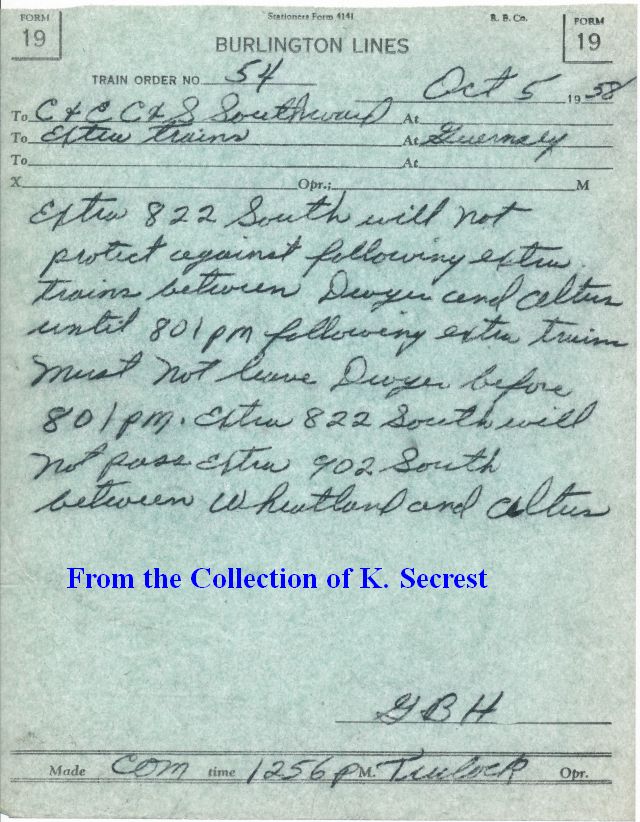 FORM 19
Stationers Form 4141
B. B. Co.
FORM 19
BURLINGTON LINES
TRAIN ORDER NO. 54
Oct 5 1958
To C & E C & S Southward At
To Extra trains At Guernsey
To At
X Opr.; M
Extra 822 South will not
protect against following extra
trains between Dwyer and Altus
until 801 pm following extra trains
must not leave Dwyer before
801 pm. Extra 822 South will
not pass Extra 902 South
between Wheatland and Altus
From the Collection of K. Secrest
GBH
Made COM time 1256 P M. Trulock Opr.